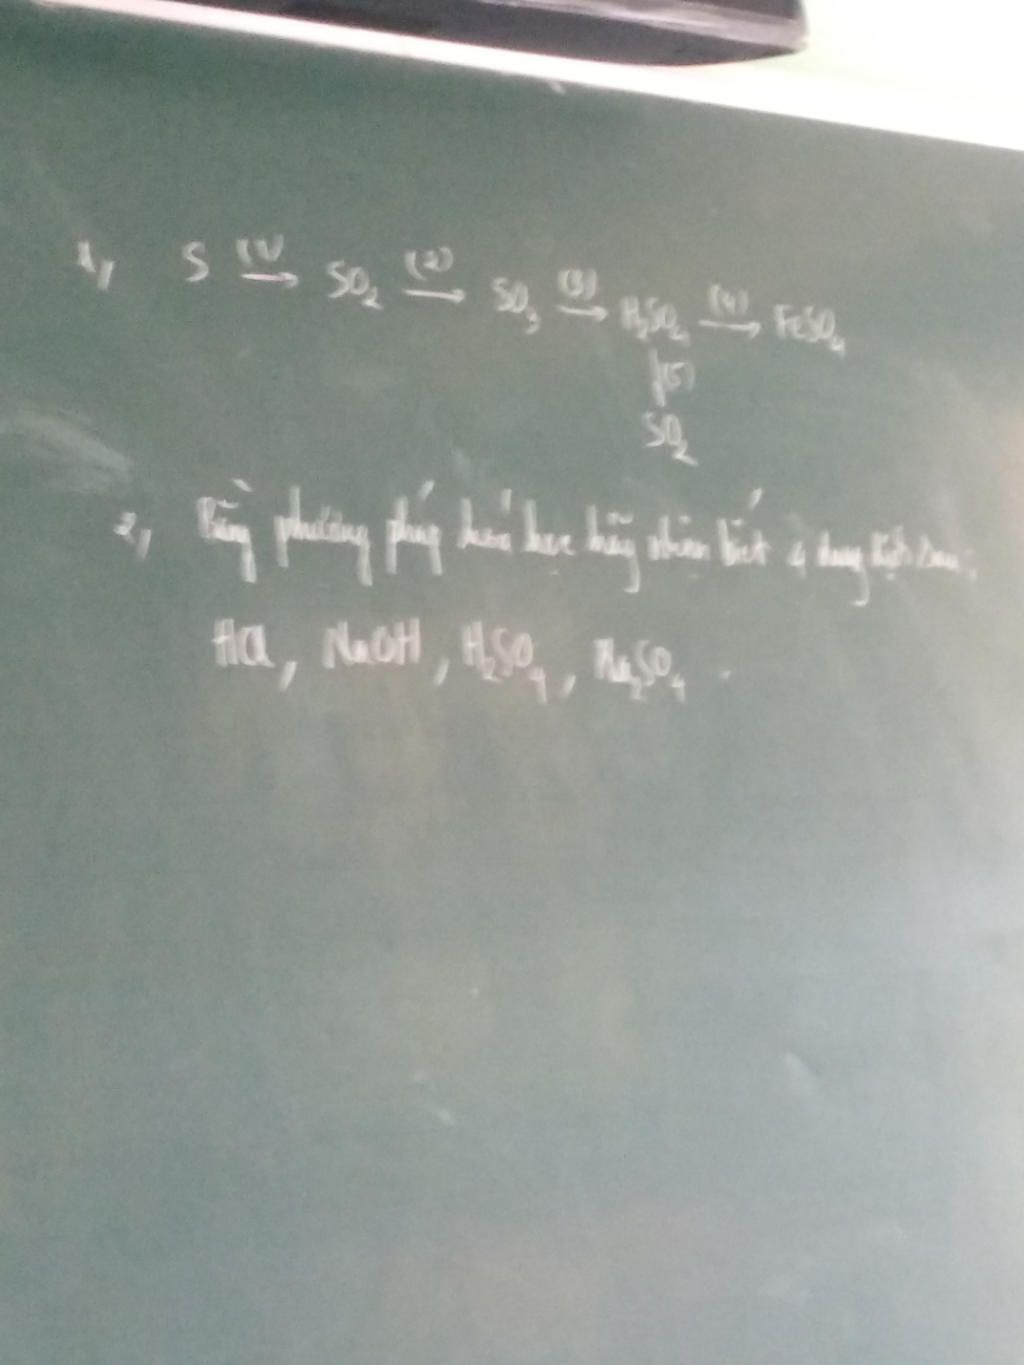 1, S (1)→ SO₂ (2)→ SO₃ (3)→ H₂SO₄ (4)→ FeSO₄
(5)
SO₂
2, Bằng phương pháp hoá học hãy nhận biết 4 dung dịch sau:
HCl, NaOH, H₂SO₄, Na₂SO₄.